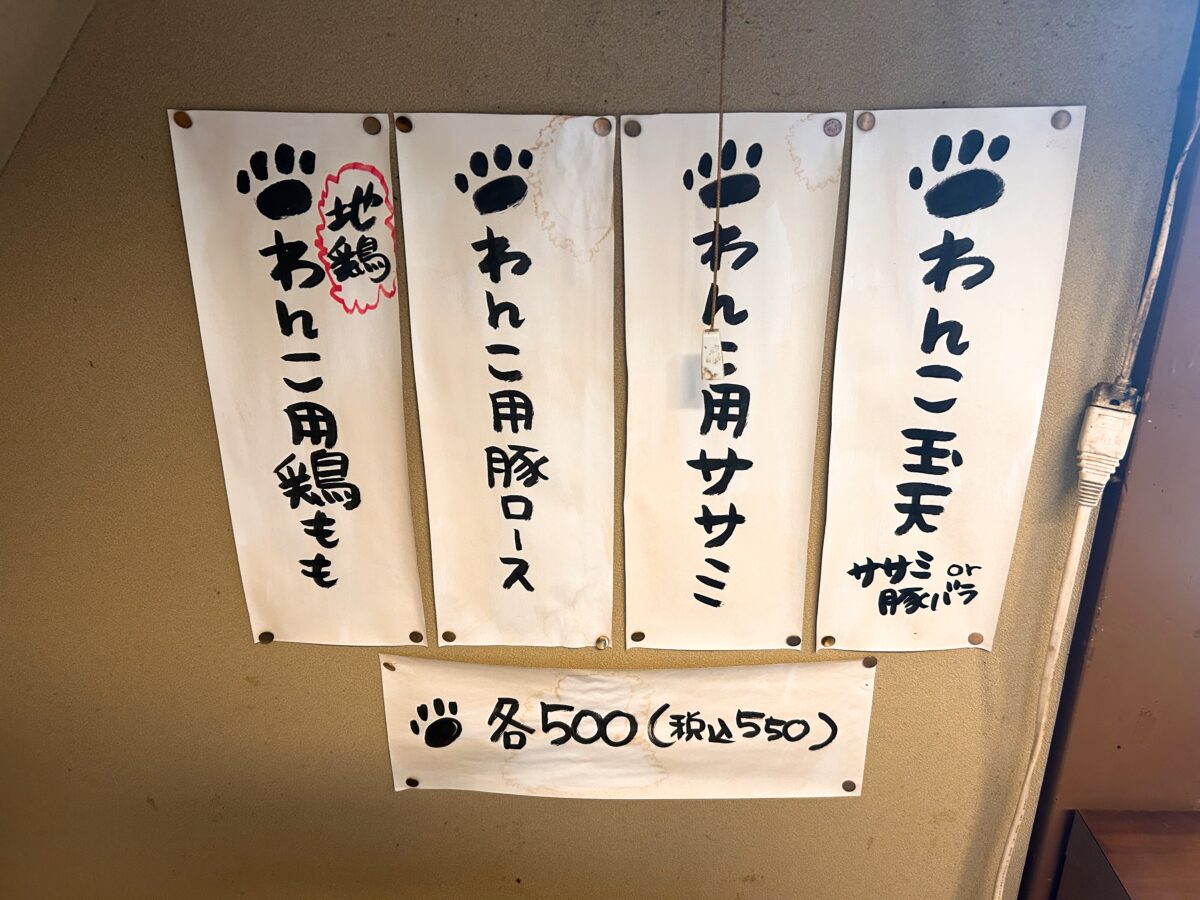 わんこ玉天
ササミ or
豚バラ
わんこ用ササミ
わんこ用豚ロース
地鶏
わんこ用鶏もも
各500(税込550)